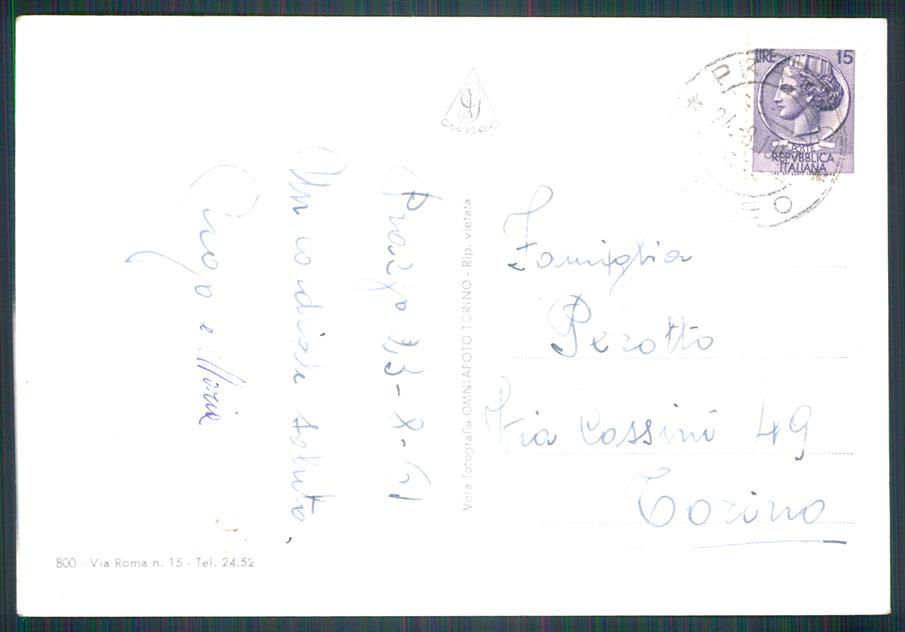 Cuneo
LIRE 15
POSTE
REPVBBLICA
ITALIANA
23-8-61
Un cordiale saluto,
e Maria
Vera fotografia OMNIAFOTO TORINO - Rip. vietata
Famiglia
Perotto
Via Cassini 49
Torino
800 - Via Roma n. 15 - Tel. 24.52